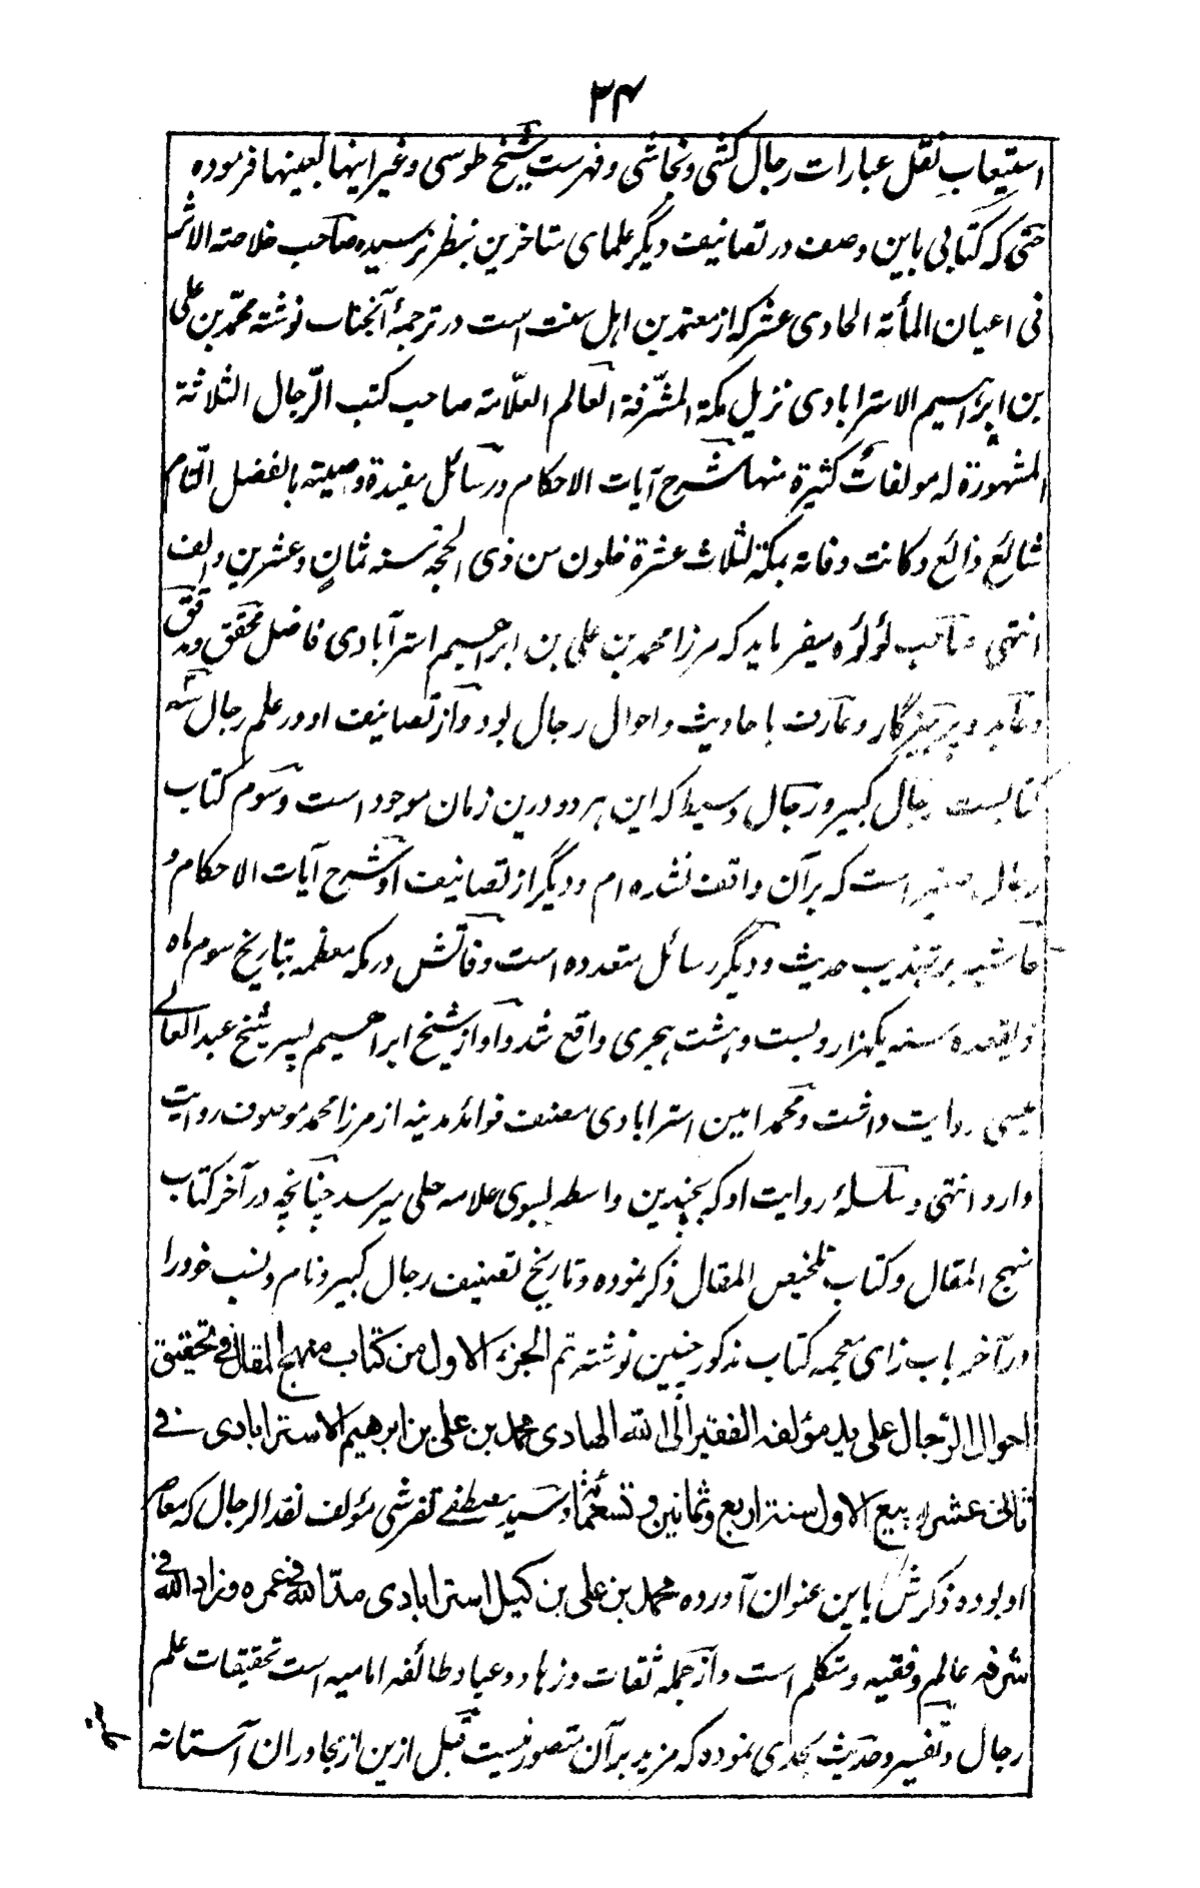 ۳۴
استیعاب نقل عبارات رجال کشی و نجاشی و فهرست شیخ طوسی و غیر اینها بعینها فرموده
حتی که کتابی باین وصف در تصانیف دیگر علمای متاخرین بنظر نرسیده صاحب خلاصة الاثر
فی اعیان المأته الحادی عشر که از معتمدین اهل سنت است در ترجمهٔ آنجناب نوشته محمّد بن علی
بن ابراهیم الاسترابادی نزیل مکة المشرّفة العالم العلّامة صاحب کتب الرّجال الثلاثة
المشهورة له مولفات کثیرة منها شرح آیات الاحکام و رسائل مفیدة وصیته بالفضل التّام
شائع ذائع و کانت وفاته بمکة لثلاث عشرة خلون من ذی الحجة سنه ثمانٍ و عشرین و الف
انتهی و صاحب لؤلؤه میفرماید که مرزا محمد بن علی بن ابراهیم استرآبادی فاضل محقق و مدقق
و عابد و پرهیزگار و عارف باحادیث و احوال رجال بود و از تصانیف او در علم رجال سه
کتابست رجال کبیر و رجال وسیط که این هر دو درین زمان موجود است و سوم کتاب
رجال صغیر است که بر آن واقف نشده ام و دیگر از تصانیف او شرح آیات الاحکام و
حاشیه بر تهذیب حدیث و دیگر رسائل متعدده است وفاتش در مکه معظمه بتاریخ سوم ماه
ذیقعده سنه یکهزار و بست و هشت هجری واقع شد و او از شیخ ابراهیم پسر شیخ عبد العالے
میسی روایت داشت و محمد امین استرابادی مصنف فوائد مدنیه از مرزا محمد موصوف روایت
دارد انتهی و سلسلهٔ روایت او که بچندین واسطه بسوی علامه حلی میرسد چنانچه در آخر کتاب
نهج المقال و کتاب تلخیص المقال ذکر نموده و تاریخ تصنیف رجال کبیر و نام و نسب خود را
در آخر باب زای معجمه کتاب مذکور چنین نوشته تم الجزء الاول من کتاب منهج المقال فی تحقیق
احوال الرّجال علی ید مؤلفه الفقیر الی الله الهادی محمد بن علی بن ابرهیم الاسترابادی فے
ثانی عشر ربیع الاول سنة اربع و ثمانین و تسعمأئة و سید مصطفے تفرشی مؤلف نقد الرجال که معاصر
او بوده ذکرش باین عنوان آورده محمد بن علی بن کیل استرابادی مدّ الله فی عمره و زاد الله فی
شرفه عالم و فقیه و متکلم است و از جمله ثقات و زهاد و عباد طائفه امامیه است تحقیقات علم
رجال و تفسیر و حدیث بحدی نموده که مزید بر آن متصور نیست قبل ازین از مجاوران آستانه